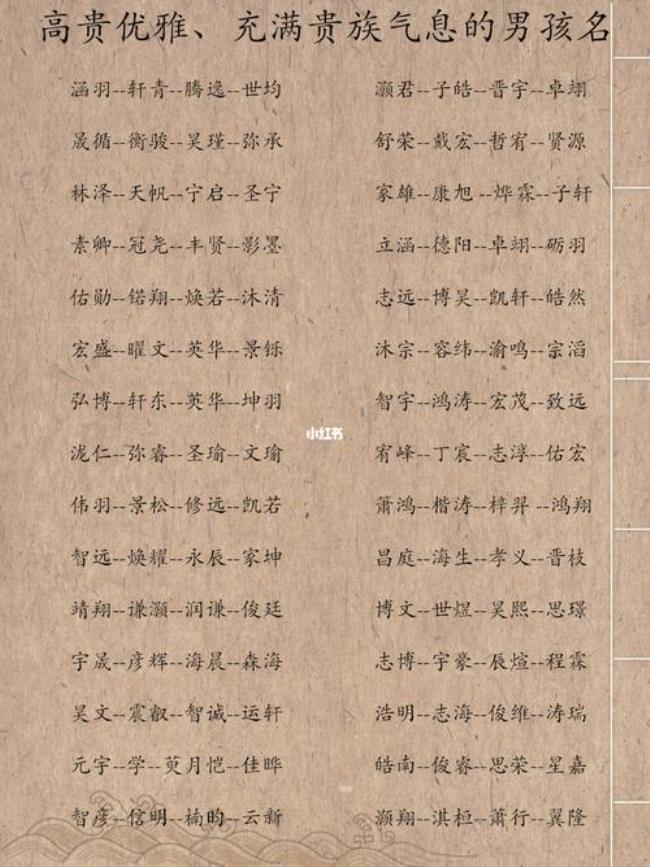 高贵优雅、充满贵族气息的男孩名
涵羽--轩青--腾逸--世均
晟循--衡骏--昊瑾--弥承
林泽--天帆--宁启--圣宁
素卿--冠尧--丰贤--影墨
佑勋--锘翔--焕若--沐清
宏盛--曜文--英华--景铄
弘博--轩东--英华--坤羽
泷仁--弥睿--圣瑜--文瑜
伟羽--景松--修远--凯若
智远--焕耀--永辰--家坤
靖翔--谦灏--润谦--俊廷
宇晟--彦辉--海晨--森海
昊文--震叡--智诚--运轩
元宇--学--萸月恺--佳晔
智彦--信明--楠昀--云新
灏君--子皓--晋宇--卓翊
舒荣--戴宏--哲宥--贤源
家雄--康旭--烨霖--子轩
立涵--德阳--卓翊--砺羽
志远--博昊--凯轩--皓然
沐宗--容纬--渝鸣--宗滔
智宇--鸿涛--宏茂--致远
宥峰--丁宸--志淳--佑宏
箫鸿--楷涛--梓羿--鸿翔
昌庭--海生--孝义--晋枝
博文--世煜--昊熙--思璟
志博--宇豪--辰煊--程霖
浩明--志海--俊维--涛瑞
皓南--俊睿--思荣--星嘉
灏翔--淇桓--萧行--翼隆
小红书